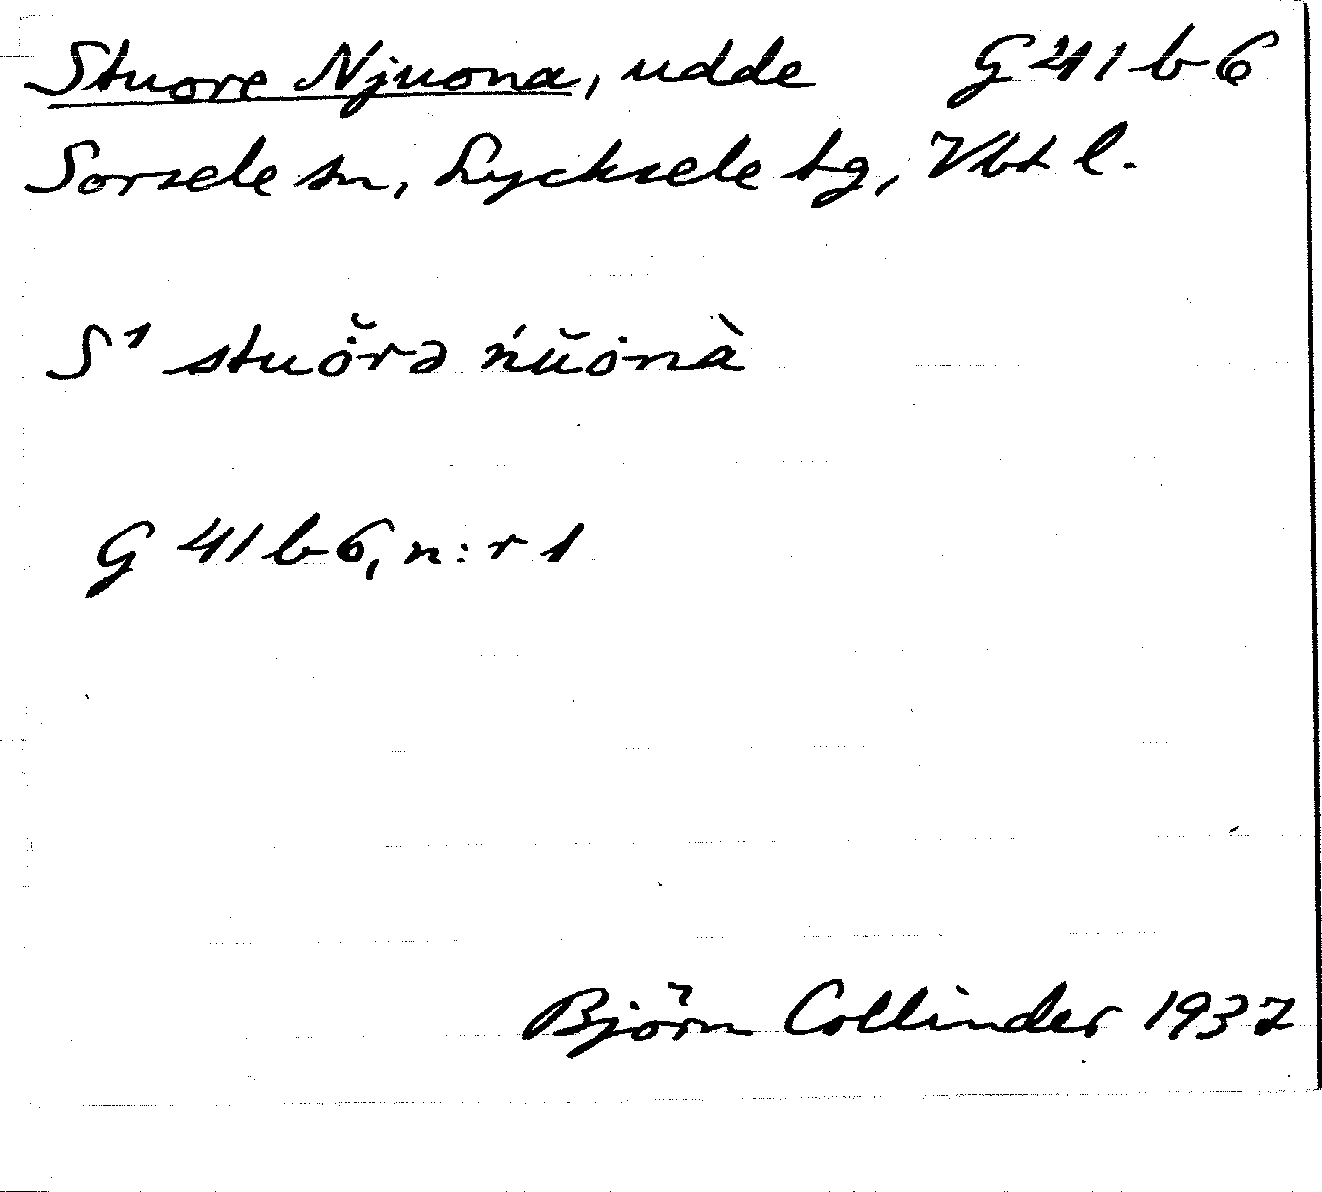 Stuore Njuona, udde G 41 b 6
Sorsele sn, Lycksele tg, Vbt l.
S¹ stuȯ̆rə ńŭȯnà
G 41 b 6, n:r 1
Björn Collinder 1937